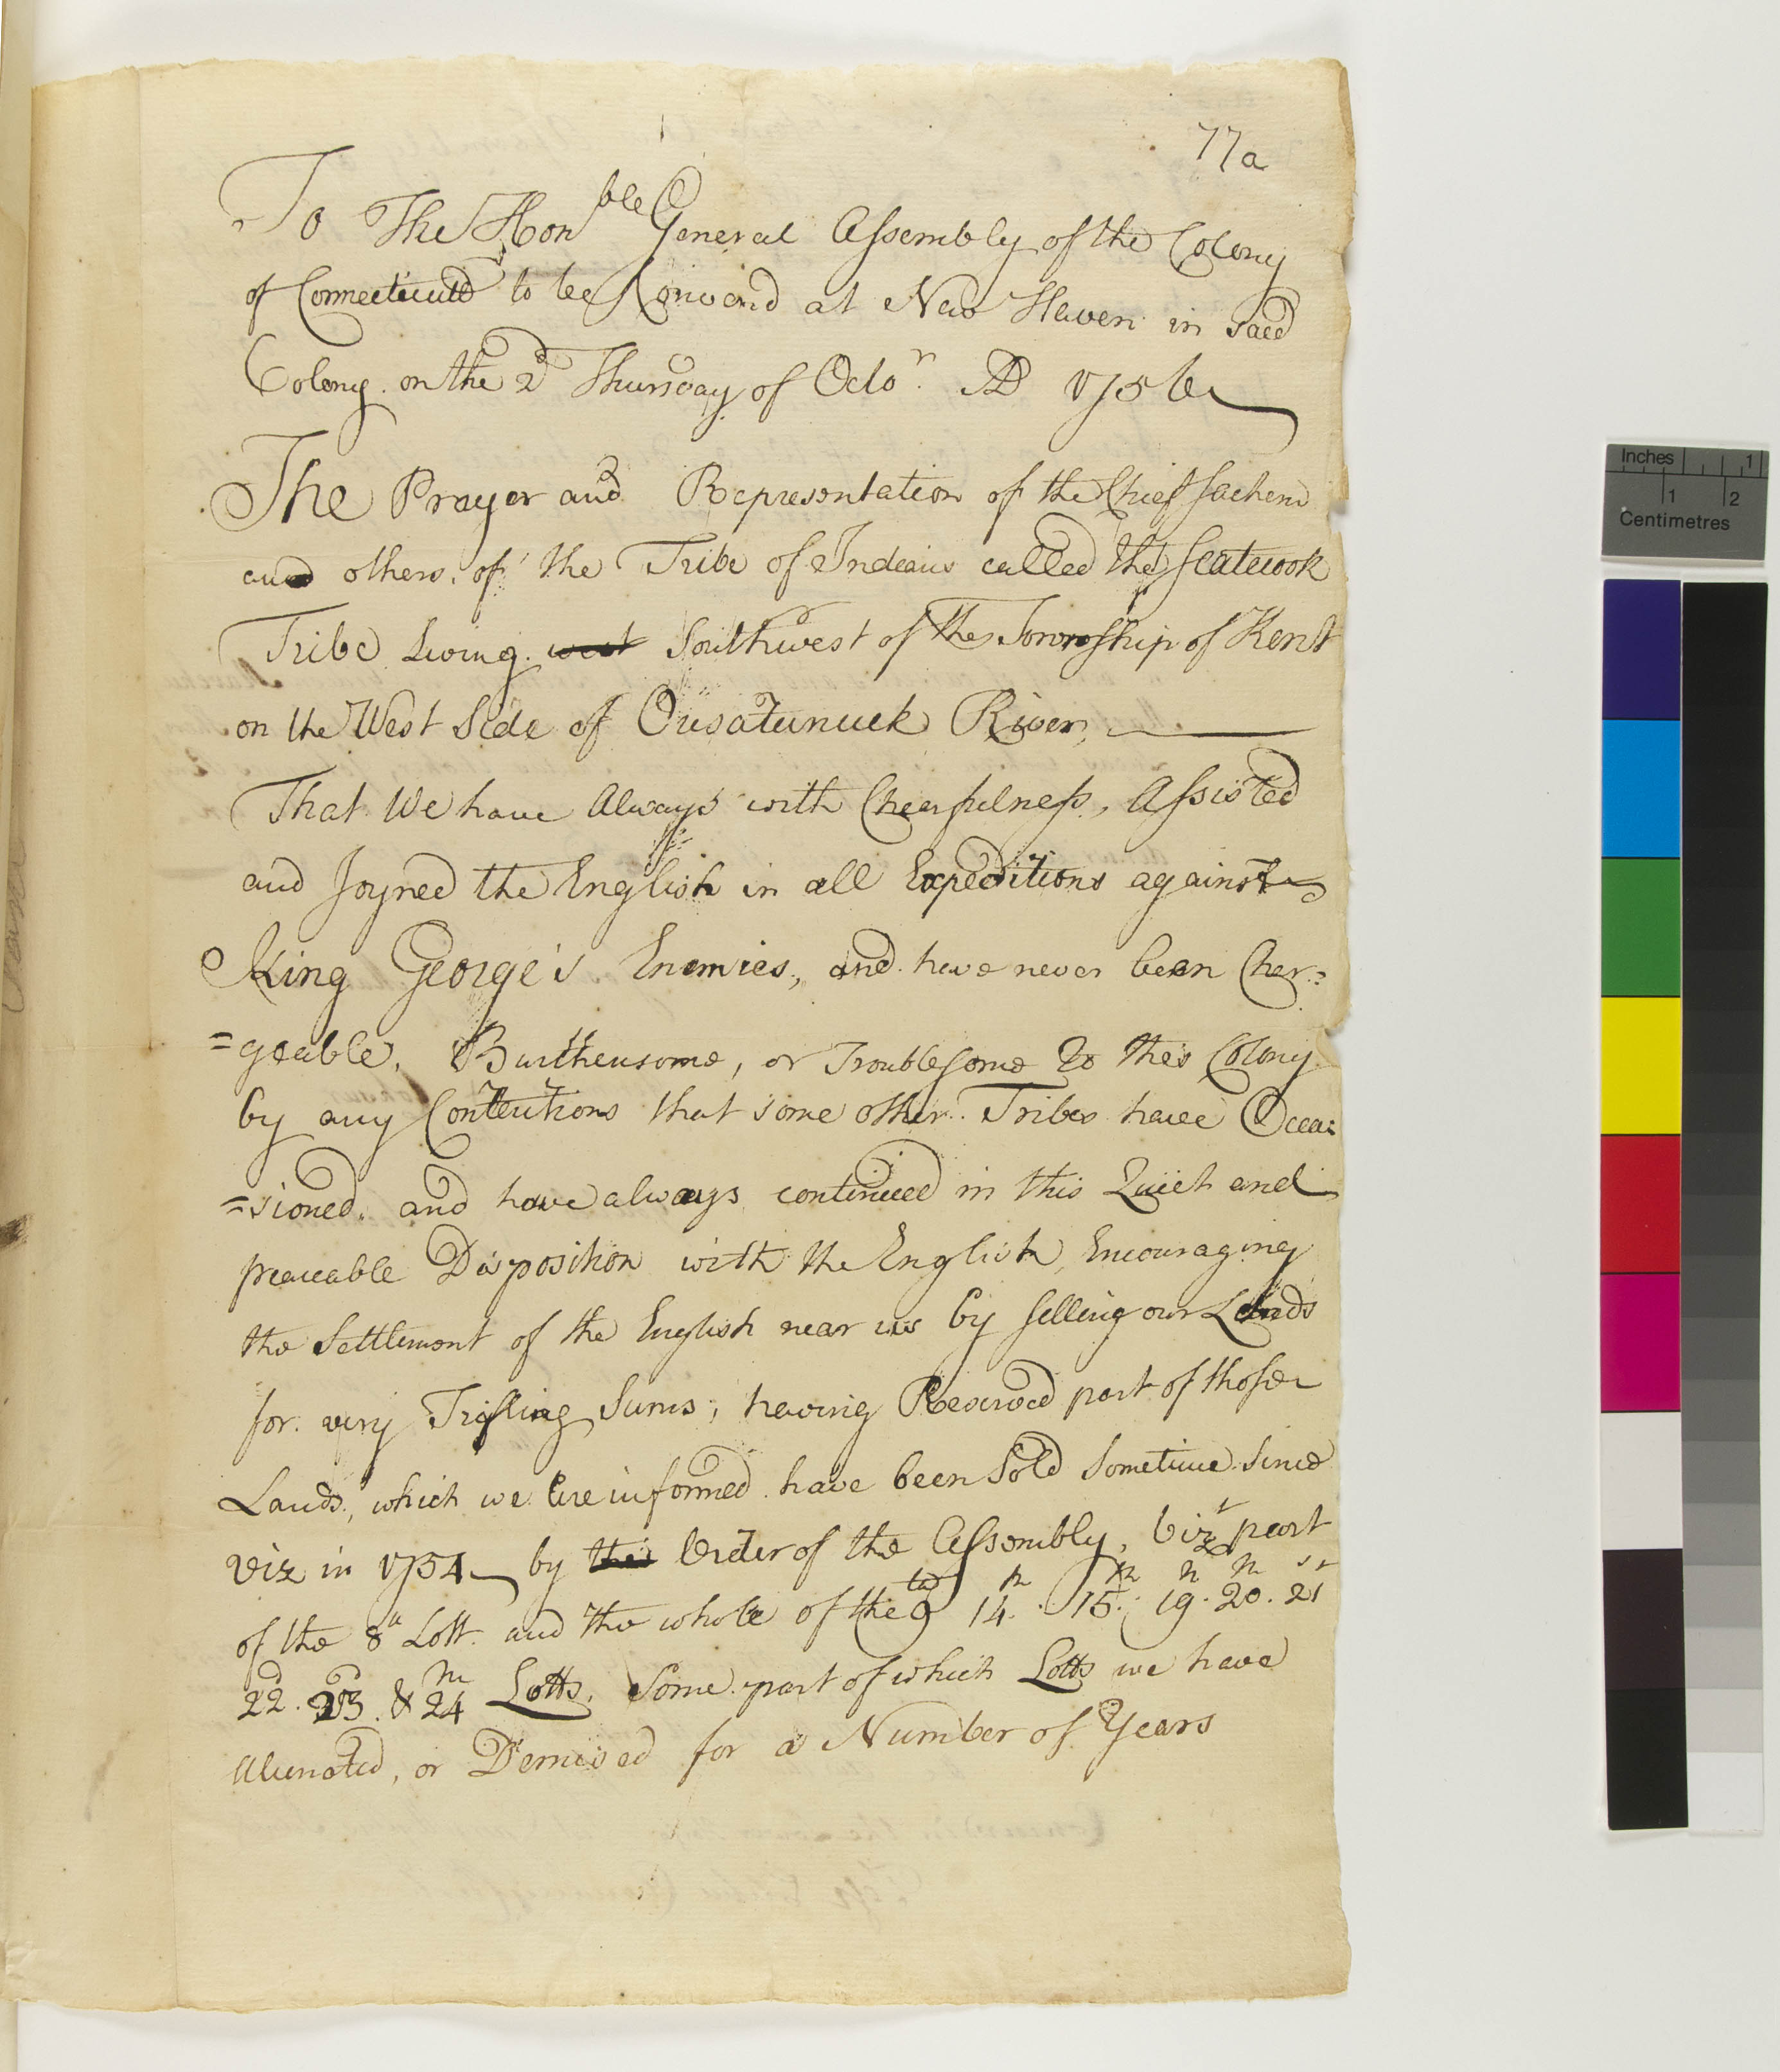 77a
To The Honble General Assembly of the Colony
of Connecticutt to be Convend at New Haven in said
Colony on the 2d Thursday of Octor. AD 1756
The Prayer and Representation of the Chief Sachem
and others of the Tribe of Indians called the Scatecook
Tribe Living west Southwest of the Township of Kent
on the West Side of Ousatunuck River,
That We have Always with Chearfulness, Assisted
and Joyned the English in all Expeditions against
King George's Enemies, and have never been Char=
=geable, Burthensome, or Troublesome to this Colony
by any Contentions that some other Tribes have Occa=
=sioned, and have always continued in this Quiet and
peaceable Disposition with the English, Encouraging
the Settlement of the English near us by selling our Lands
for very Trifling Sums; having Reserved part of those
Lands, which we are informed have been Sold Sometime Since
viz in 1754 by this Order of the Assembly, vizt part
of the 8th Lott and the whole of the 9th 14th 15th 19th 20th 21st
22d. 23d. & 24th Lotts. Some part of which Lotts we have
Alienated, or Demised for a Number of Years
Inches 1
1 2
Centimetres